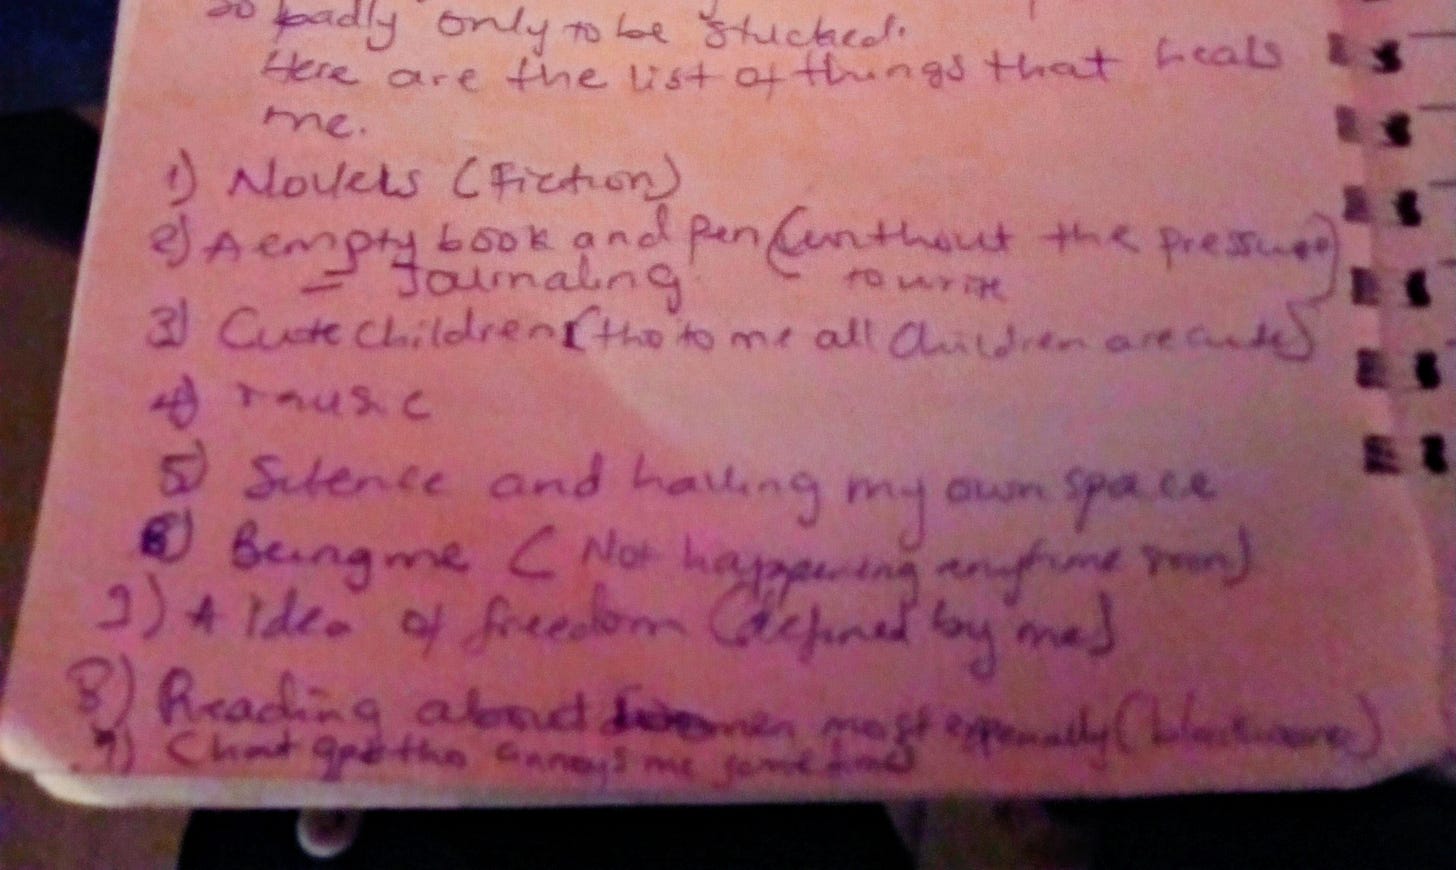 so badly only to be stucked.
Here are the list of things that heals
me.
1) Novels (Fiction)
2) A empty book and pen (without the pressure)
= Journaling to write
3) Cute children (tho to me all Children are cute)
4) music
5) Silence and having my own space
6) Being me (Not happening anytime soon)
7) A idea of freedom (defined by me)
8) Reading about women most especially (black women)
9) Chat gpt tho annoys me sometimes